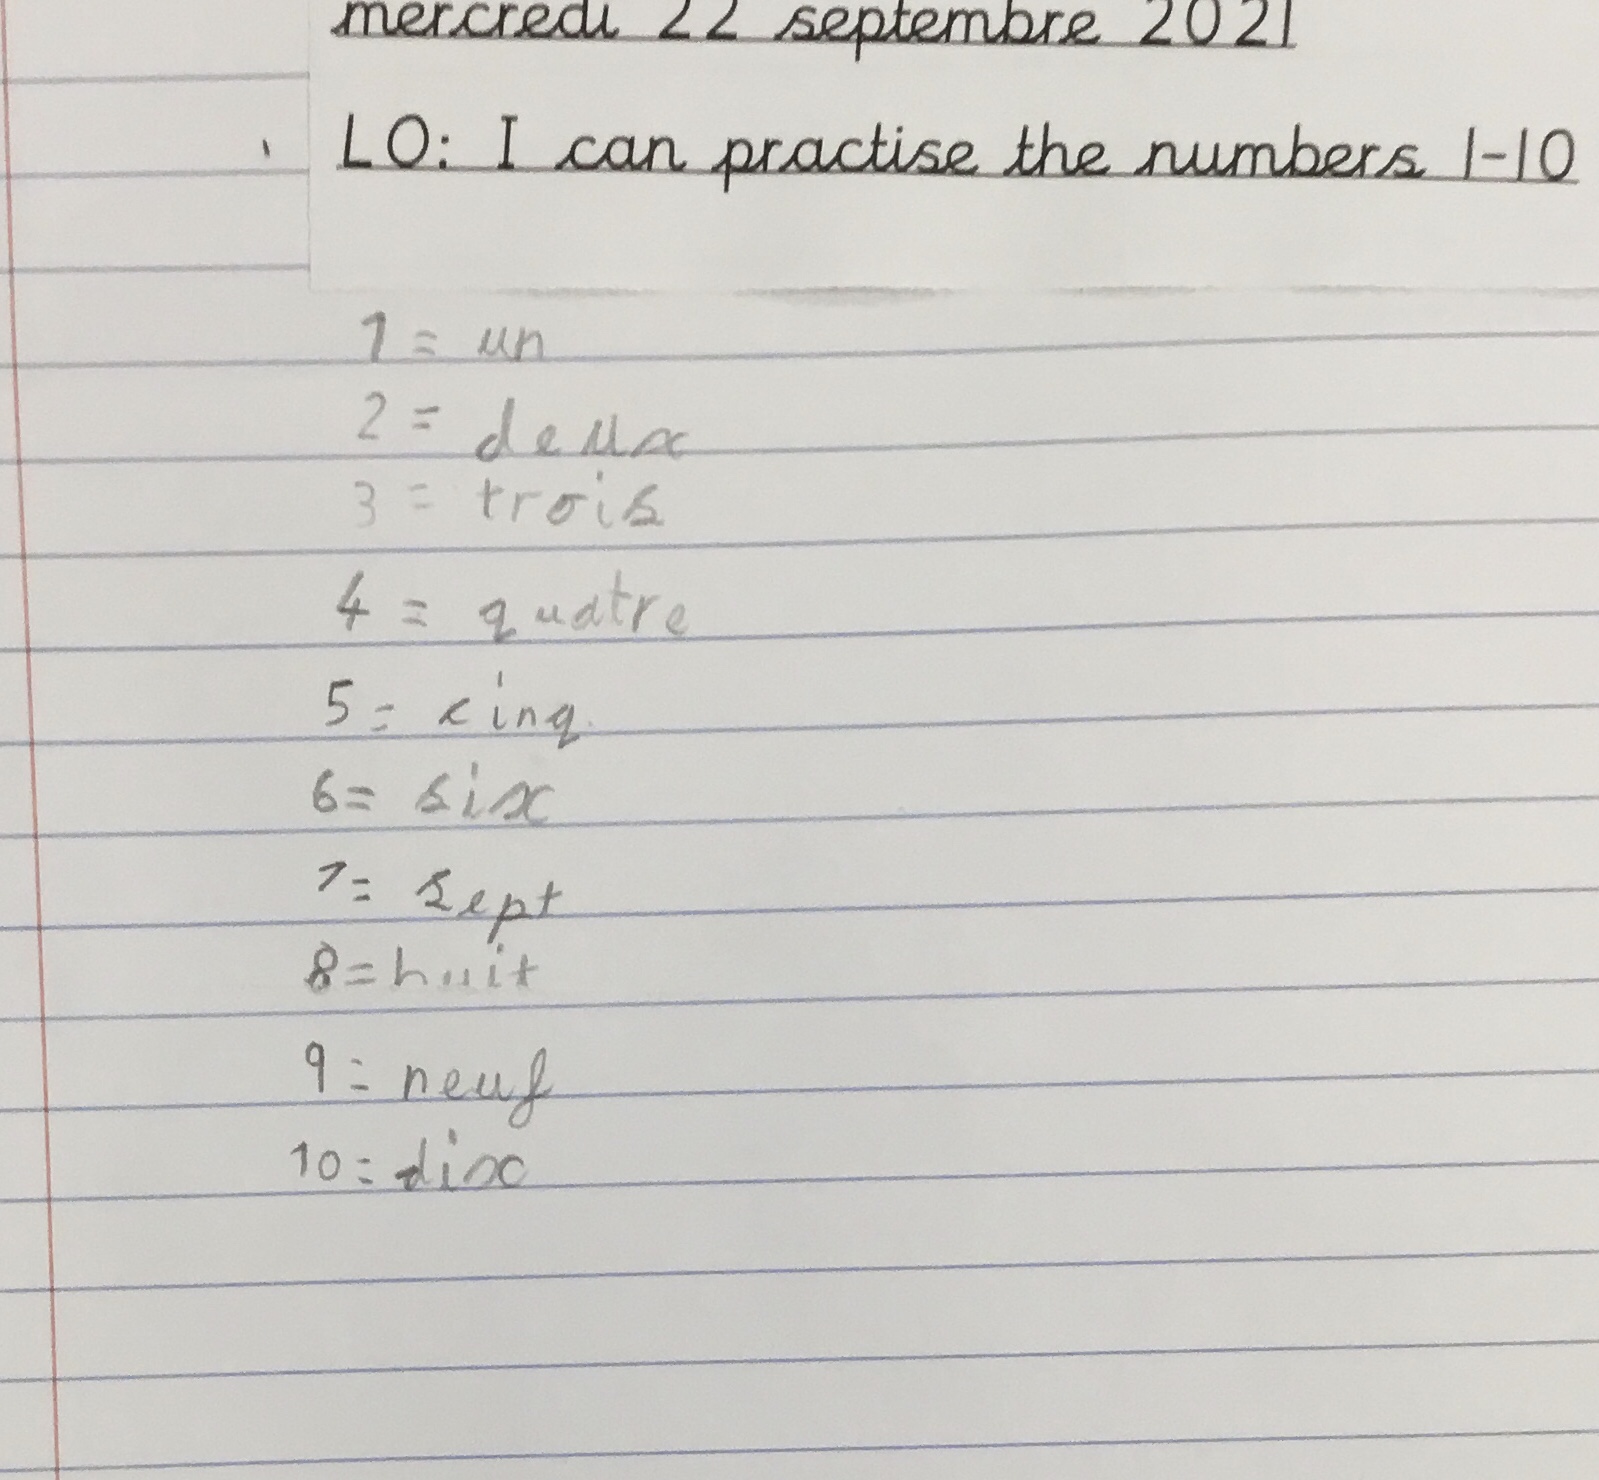 mercredi 22 septembre 2021
LO: I can practise the numbers 1-10
1 = un
2 = deux
3 = trois
4 = quatre
5 = cinq
6 = six
7 = sept
8 = huit
9 = neuf
10 = dix